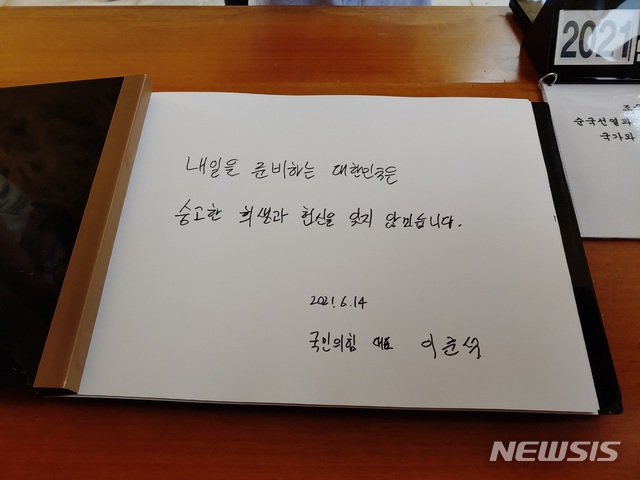 내일을 준비하는 대한민국은
숭고한 희생과 헌신을 잊지 않겠습니다.
2021. 6. 14
국민의힘 대표 이준석
2021
순국선열과
국가와
NEWSIS